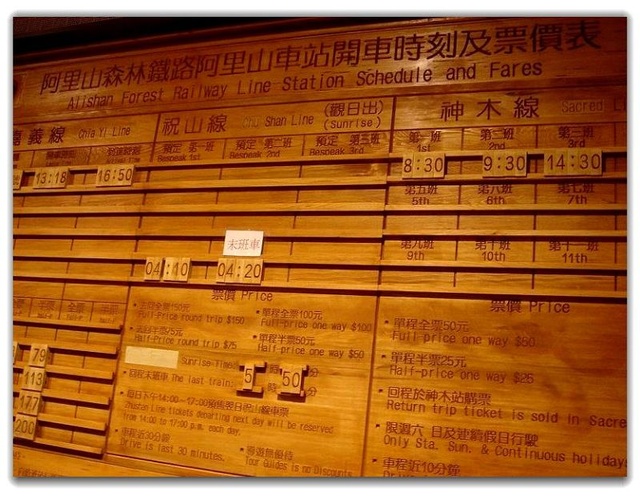 阿里山森林鐵路阿里山車站開車時刻及票價表
Alishan Forest Railway Line Station Schedule and Fares
嘉義線 Chia Yi Line
祝山線 Chu Shan Line (觀日出) (Sunrise)
神木線 Sacred
預定 第一班 預定 第二班 預定 第三班
Respeak 1st Respeak 2nd Respeak 3rd
第一班 第二班 第三班
1st 2nd 3rd
13:18 16:50
8:30 9:30 14:30
第五班 第六班 第七班
5th 6th 7th
末班車
第九班 第十班 第十一班
9th 10th 11th
04:10 04:20
全票 半票 全票 半票
79
113
177
200
票價 Price
去回全票150元
Full-Price round trip $150
去回半票75元
Half-Price round trip $75
單程全票100元
Full-price one way $100
單程半票50元
Half-price one way $50
Sunrise-Time
5 時 50 分
回程末班車 The last train:
每日下午14:00~17:00預售翌日祝山線車票
Zhushan Line tickets departing next day will be reserved
from 14:00 to 17:00 p.m. each day.
車程近30分鐘
Drive is last 30 minutes.
導遊無優待
Tour Guides is no Discounts
票價 Price
單程全票50元
Full-price one way $50
單程半票25元
Half-price one way $25
回程於神木站購票
Return trip ticket is sold in Sacre
限週六、日及連續假日行駛
Only Sta. Sun. & Continuous holidays
車程近10分鐘